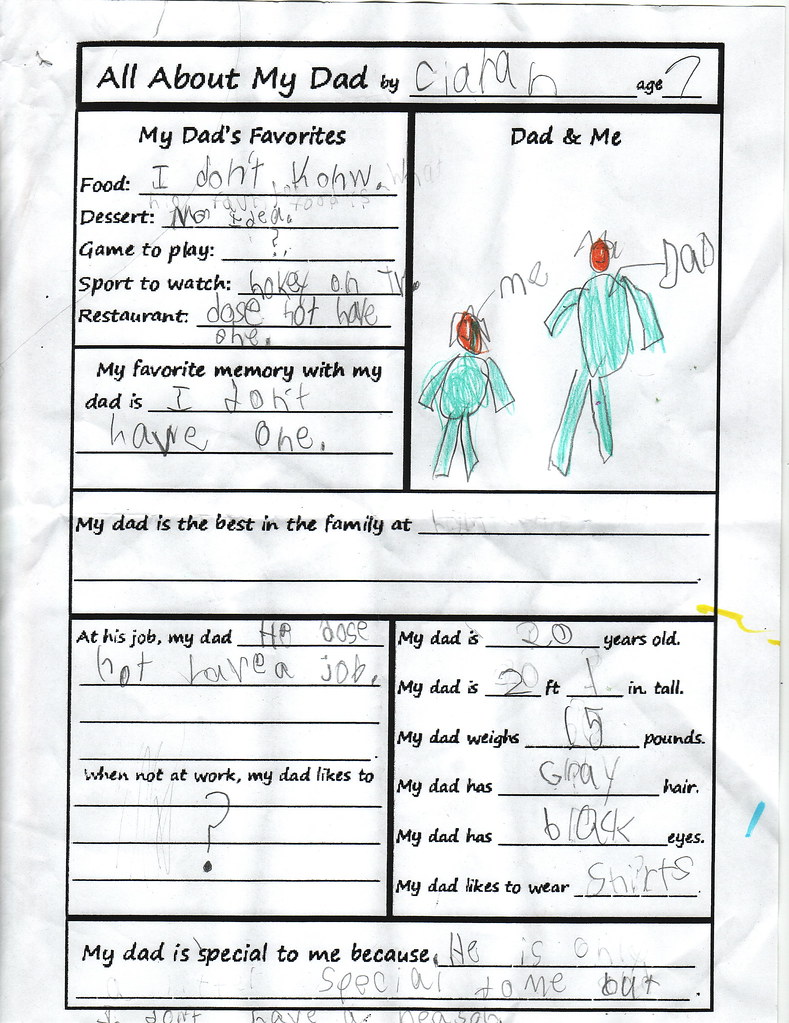 All About My Dad by Ciaran age 7
My Dad's Favorites
Food: I don't Konw. What
his favrit food is.
Dessert: No Idea.
Game to play: ?
Sport to watch: hokey on TV.
Restaurant: dose not have
one.
Dad & Me
me
Dad
My favorite memory with my
dad is I don't
have one.
My dad is the best in the family at
At his job, my dad He dose
not have a job.
When not at work, my dad likes to
?
My dad is 20 years old.
My dad is 20 ft 1 in. tall.
My dad weighs 65 pounds.
My dad has Gray hair.
My dad has black eyes.
My dad likes to wear Shirts.
My dad is special to me because He is only
a little special to me but
I don't have a reason